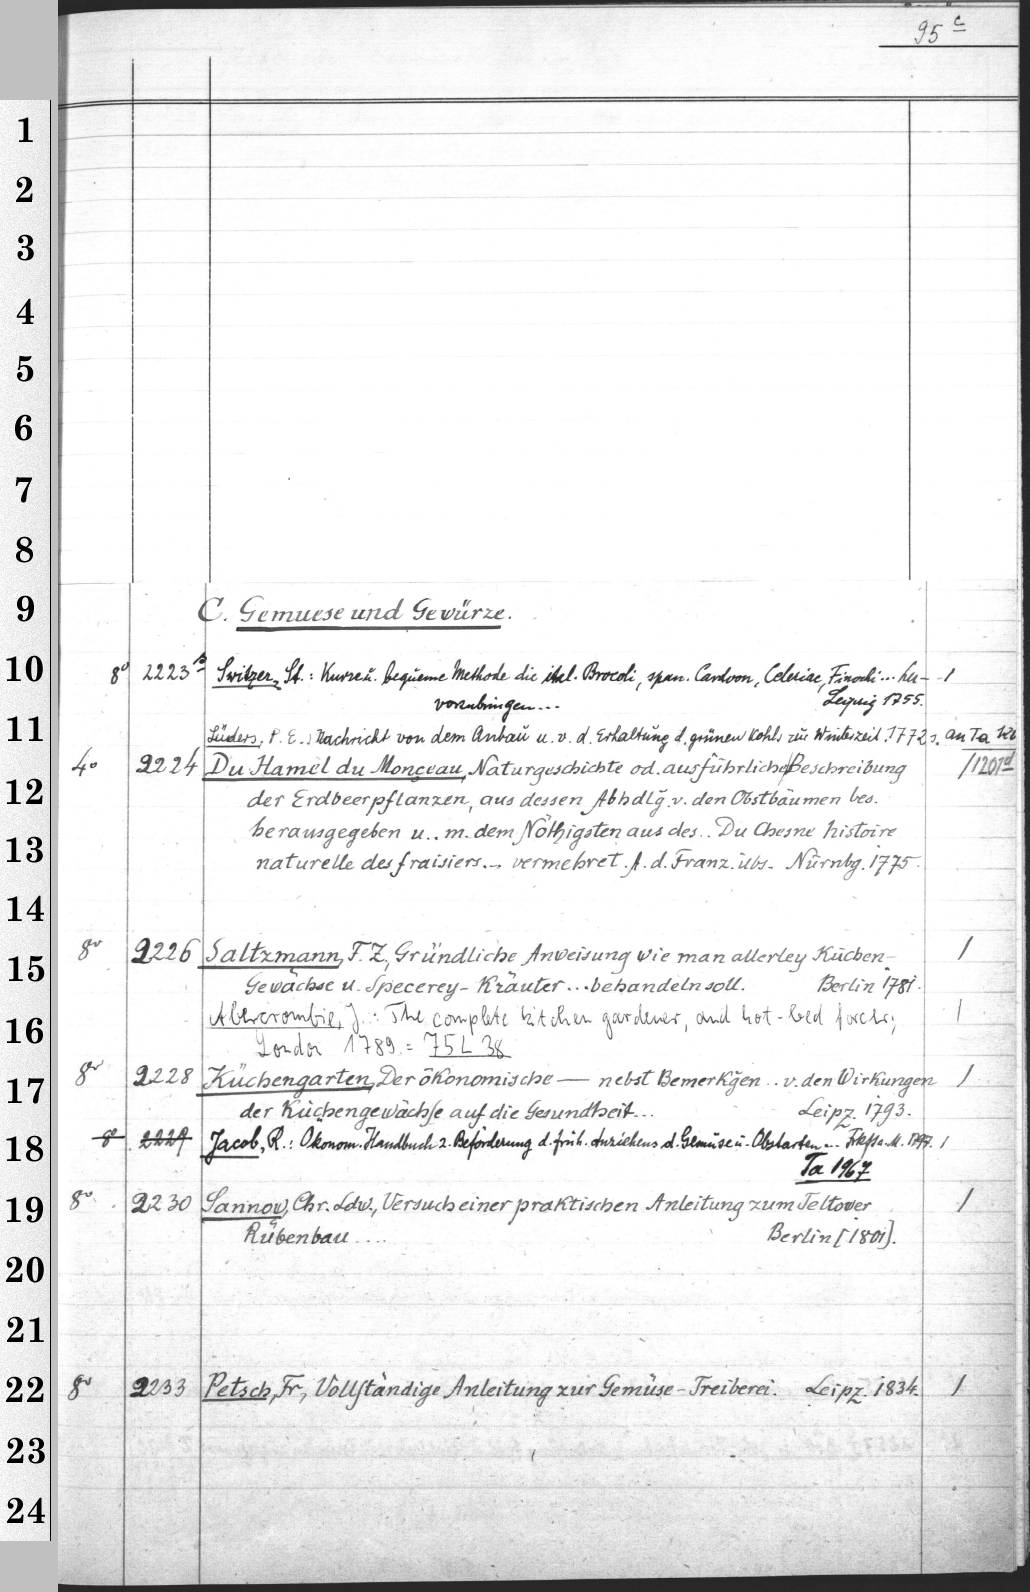 95 c
1
2
3
4
5
6
7
8
9
C. Gemuese und Gewürze.
10
8° 2223 b Switzer, St.: Kurze u. bequeme Methode die ital. Brocoli, span. Cardoon, Celeriac, Finochi... her- 1
vorzubringen... Leipzig 1755.
11
Lüders, P. E.: Nachricht von dem Anbau u. v. d. Erhaltung d. grünen Kohls zu Winterzeit. 1772 s. an Ta
4° 2224 Du Hamel du Monçeau, Naturgeschichte od. ausführliche Beschreibung /1201d
12
der Erdbeerpflanzen, aus dessen Abhdlg. v. den Obstbäumen bes.
herausgegeben u.. m. dem Nöthigsten aus des.. Du Chesne histoire
13
naturelle des fraisiers... vermehret. A. d. Franz. übs. Nürnbg. 1775.
14
8° 2226 Saltzmann, F. Z., Gründliche Anweisung wie man allerley Küchen- /
15
Gewächse u. Specerey-Kräuter... behandeln soll. Berlin 1781.
16
Abercrombie, J.: The complete kitchen gardener, and hot-bed forcer; /
London 1789. = 75 L 38
17
8° 2228 Küchengarten, Der ökonomische — nebst Bemerkgen .. v. den Wirkungen /
der Küchengewächse auf die Gesundheit... Leipz. 1793.
18
8° 2229 Jacob, R.: Ökonom. Handbuch z. Beförderung d. früh. Anziehens d. Gemüse u. Obstarten... Fkft a. M. 1797. /
Ta 1967
19
8° 2230 Sannow, Chr. Ldw., Versuch einer praktischen Anleitung zum Teltower /
Rübenbau .... Berlin [1801].
20
21
22
8° 2233 Petsch, Fr., Vollständige Anleitung zur Gemüse-Treiberei. Leipz. 1834. /
23
24